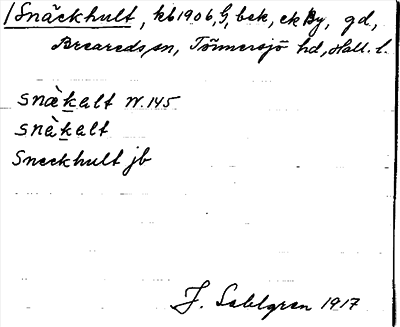 Snäckhult, kb 1906, G, bek, ek By, gd,
Breareds sn, Tönnersjö hd, Hall. l.
snæ̀kalt W. 145
snæ̀kalt
Sneckhult jb
J. Sahlgren 1917